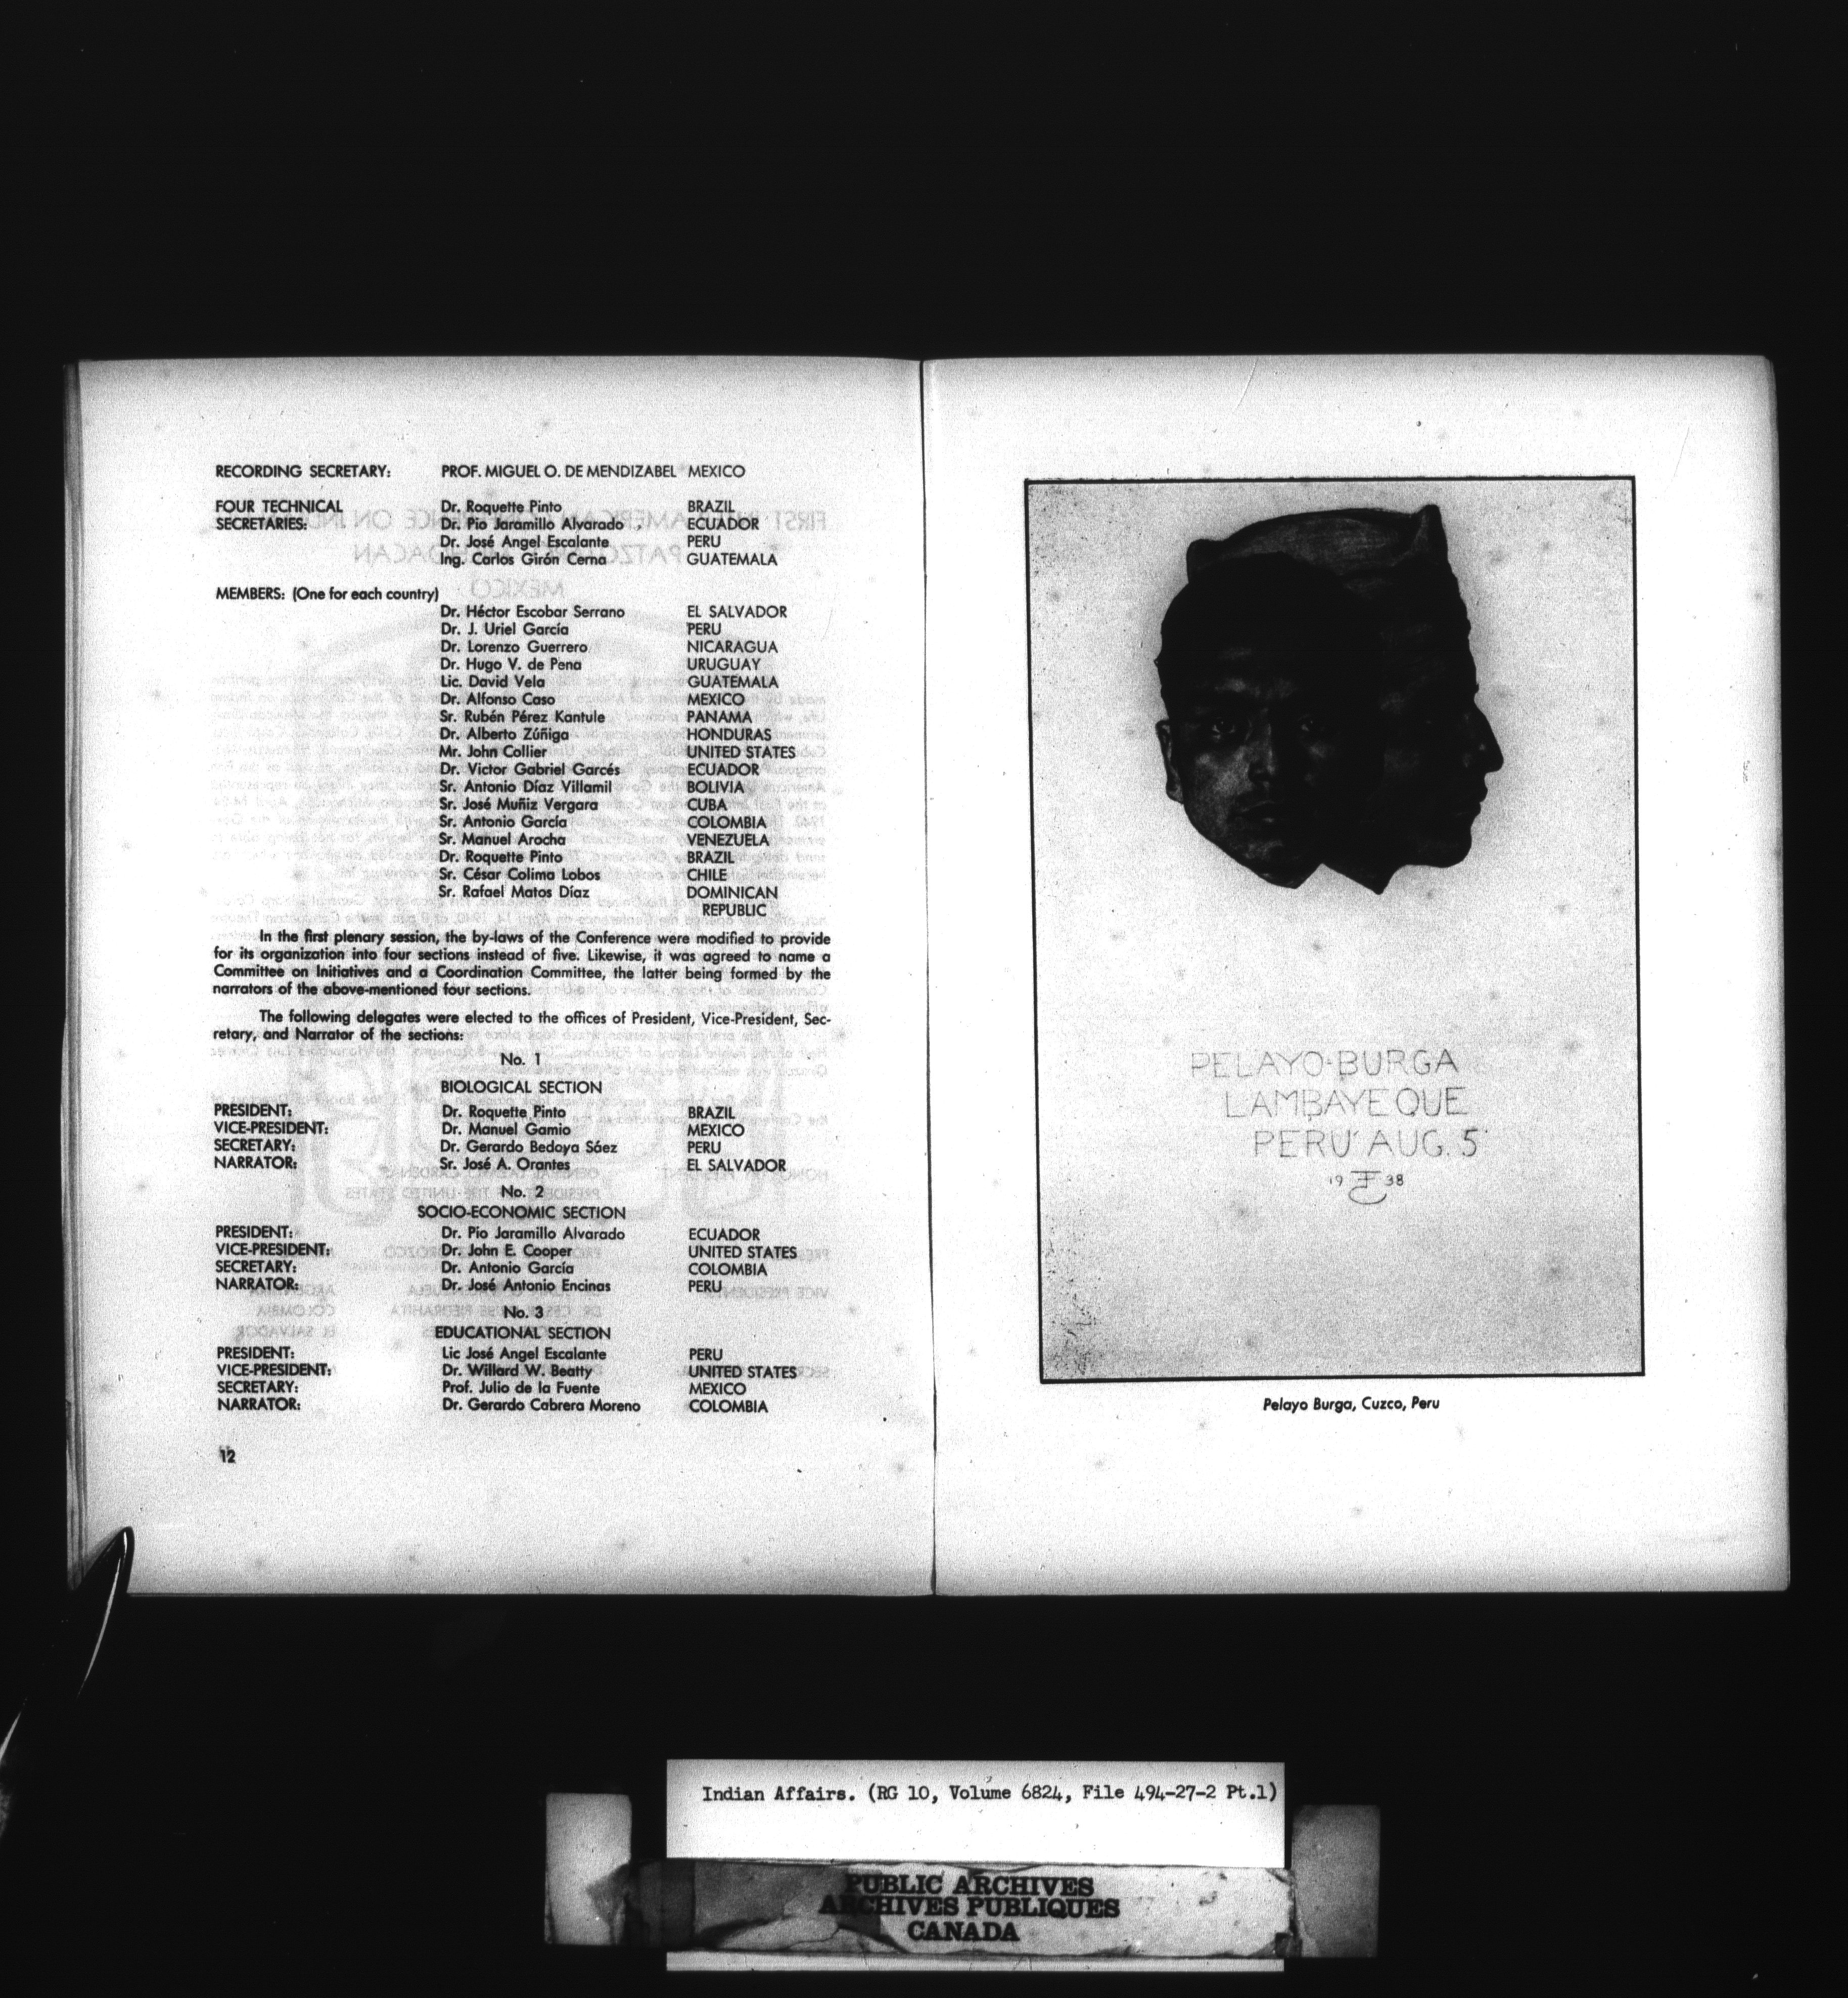 RECORDING SECRETARY: PROF. MIGUEL O. DE MENDIZABEL MEXICO
FOUR TECHNICAL Dr. Roquette Pinto BRAZIL
SECRETARIES: Dr. Pio Jaramillo Alvarado ECUADOR
Dr. José Angel Escalante PERU
Ing. Carlos Girón Cerna GUATEMALA
MEMBERS: (One for each country)
Dr. Héctor Escobar Serrano EL SALVADOR
Dr. J. Uriel García PERU
Dr. Lorenzo Guerrero NICARAGUA
Dr. Hugo V. de Pena URUGUAY
Lic. David Vela GUATEMALA
Dr. Alfonso Caso MEXICO
Sr. Rubén Pérez Kantule PANAMA
Dr. Alberto Zúñiga HONDURAS
Mr. John Collier UNITED STATES
Dr. Victor Gabriel Garcés ECUADOR
Sr. Antonio Díaz Villamil BOLIVIA
Sr. José Muñiz Vergara CUBA
Sr. Antonio García COLOMBIA
Sr. Manuel Arocha VENEZUELA
Dr. Roquette Pinto BRAZIL
Sr. César Colima Lobos CHILE
Sr. Rafael Matos Díaz DOMINICAN
REPUBLIC
In the first plenary session, the by-laws of the Conference were modified to provide
for its organization into four sections instead of five. Likewise, it was agreed to name a
Committee on Initiatives and a Coordination Committee, the latter being formed by the
narrators of the above-mentioned four sections.
The following delegates were elected to the offices of President, Vice-President, Sec-
retary, and Narrator of the sections:
No. 1
BIOLOGICAL SECTION
PRESIDENT: Dr. Roquette Pinto BRAZIL
VICE-PRESIDENT: Dr. Manuel Gamio MEXICO
SECRETARY: Dr. Gerardo Bedoya Sáez PERU
NARRATOR: Sr. José A. Orantes EL SALVADOR
No. 2
SOCIO-ECONOMIC SECTION
PRESIDENT: Dr. Pio Jaramillo Alvarado ECUADOR
VICE-PRESIDENT: Dr. John E. Cooper UNITED STATES
SECRETARY: Dr. Antonio García COLOMBIA
NARRATOR: Dr. José Antonio Encinas PERU
No. 3
EDUCATIONAL SECTION
PRESIDENT: Lic José Angel Escalante PERU
VICE-PRESIDENT: Dr. Willard W. Beatty UNITED STATES
SECRETARY: Prof. Julio de la Fuente MEXICO
NARRATOR: Dr. Gerardo Cabrera Moreno COLOMBIA
12
PELAYO-BURGA
LAMBAYEQUE
PERU AUG. 5
19 38
Pelayo Burga, Cuzco, Peru
Indian Affairs. (RG 10, Volume 6824, File 494-27-2 Pt.1)
PUBLIC ARCHIVES
ARCHIVES PUBLIQUES
CANADA